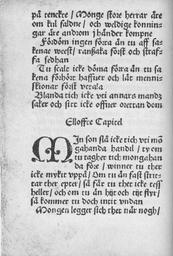 på tencke / Monge store herrar äre
om kul faldne / och weldige konnin-
gar äre androm j händer kompne
Fördöm ingen förra än tu aff sa-
kenne weest / ranszaka först och straf-
fa sedhan
Tu skalt icke döma förra än tu sa-
kena föhört haffuer och låt mennis
skionar först vttala
Blanda tich icke vti annars mandz
saker och sitt icke offuer orettan dom
Elloffte Capitel
MIn son slå icke tich vti mö
gahanda handil / ty om
tu tagher tich mongahan
da före / winner tu ther
icke mykit vppå / Om tu än fast strit-
tar ther epter / så fåår tu ther icke tess
heller / och om tu än hijt och tijt flyr /
så kommer tu doch intit vndan
Mongen legger sich ther näär nogh /